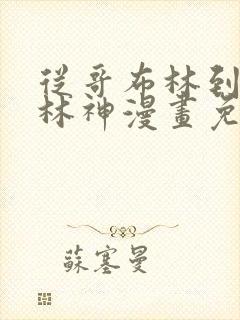 從哥布林到
林神漫畫免
蘇塞曼